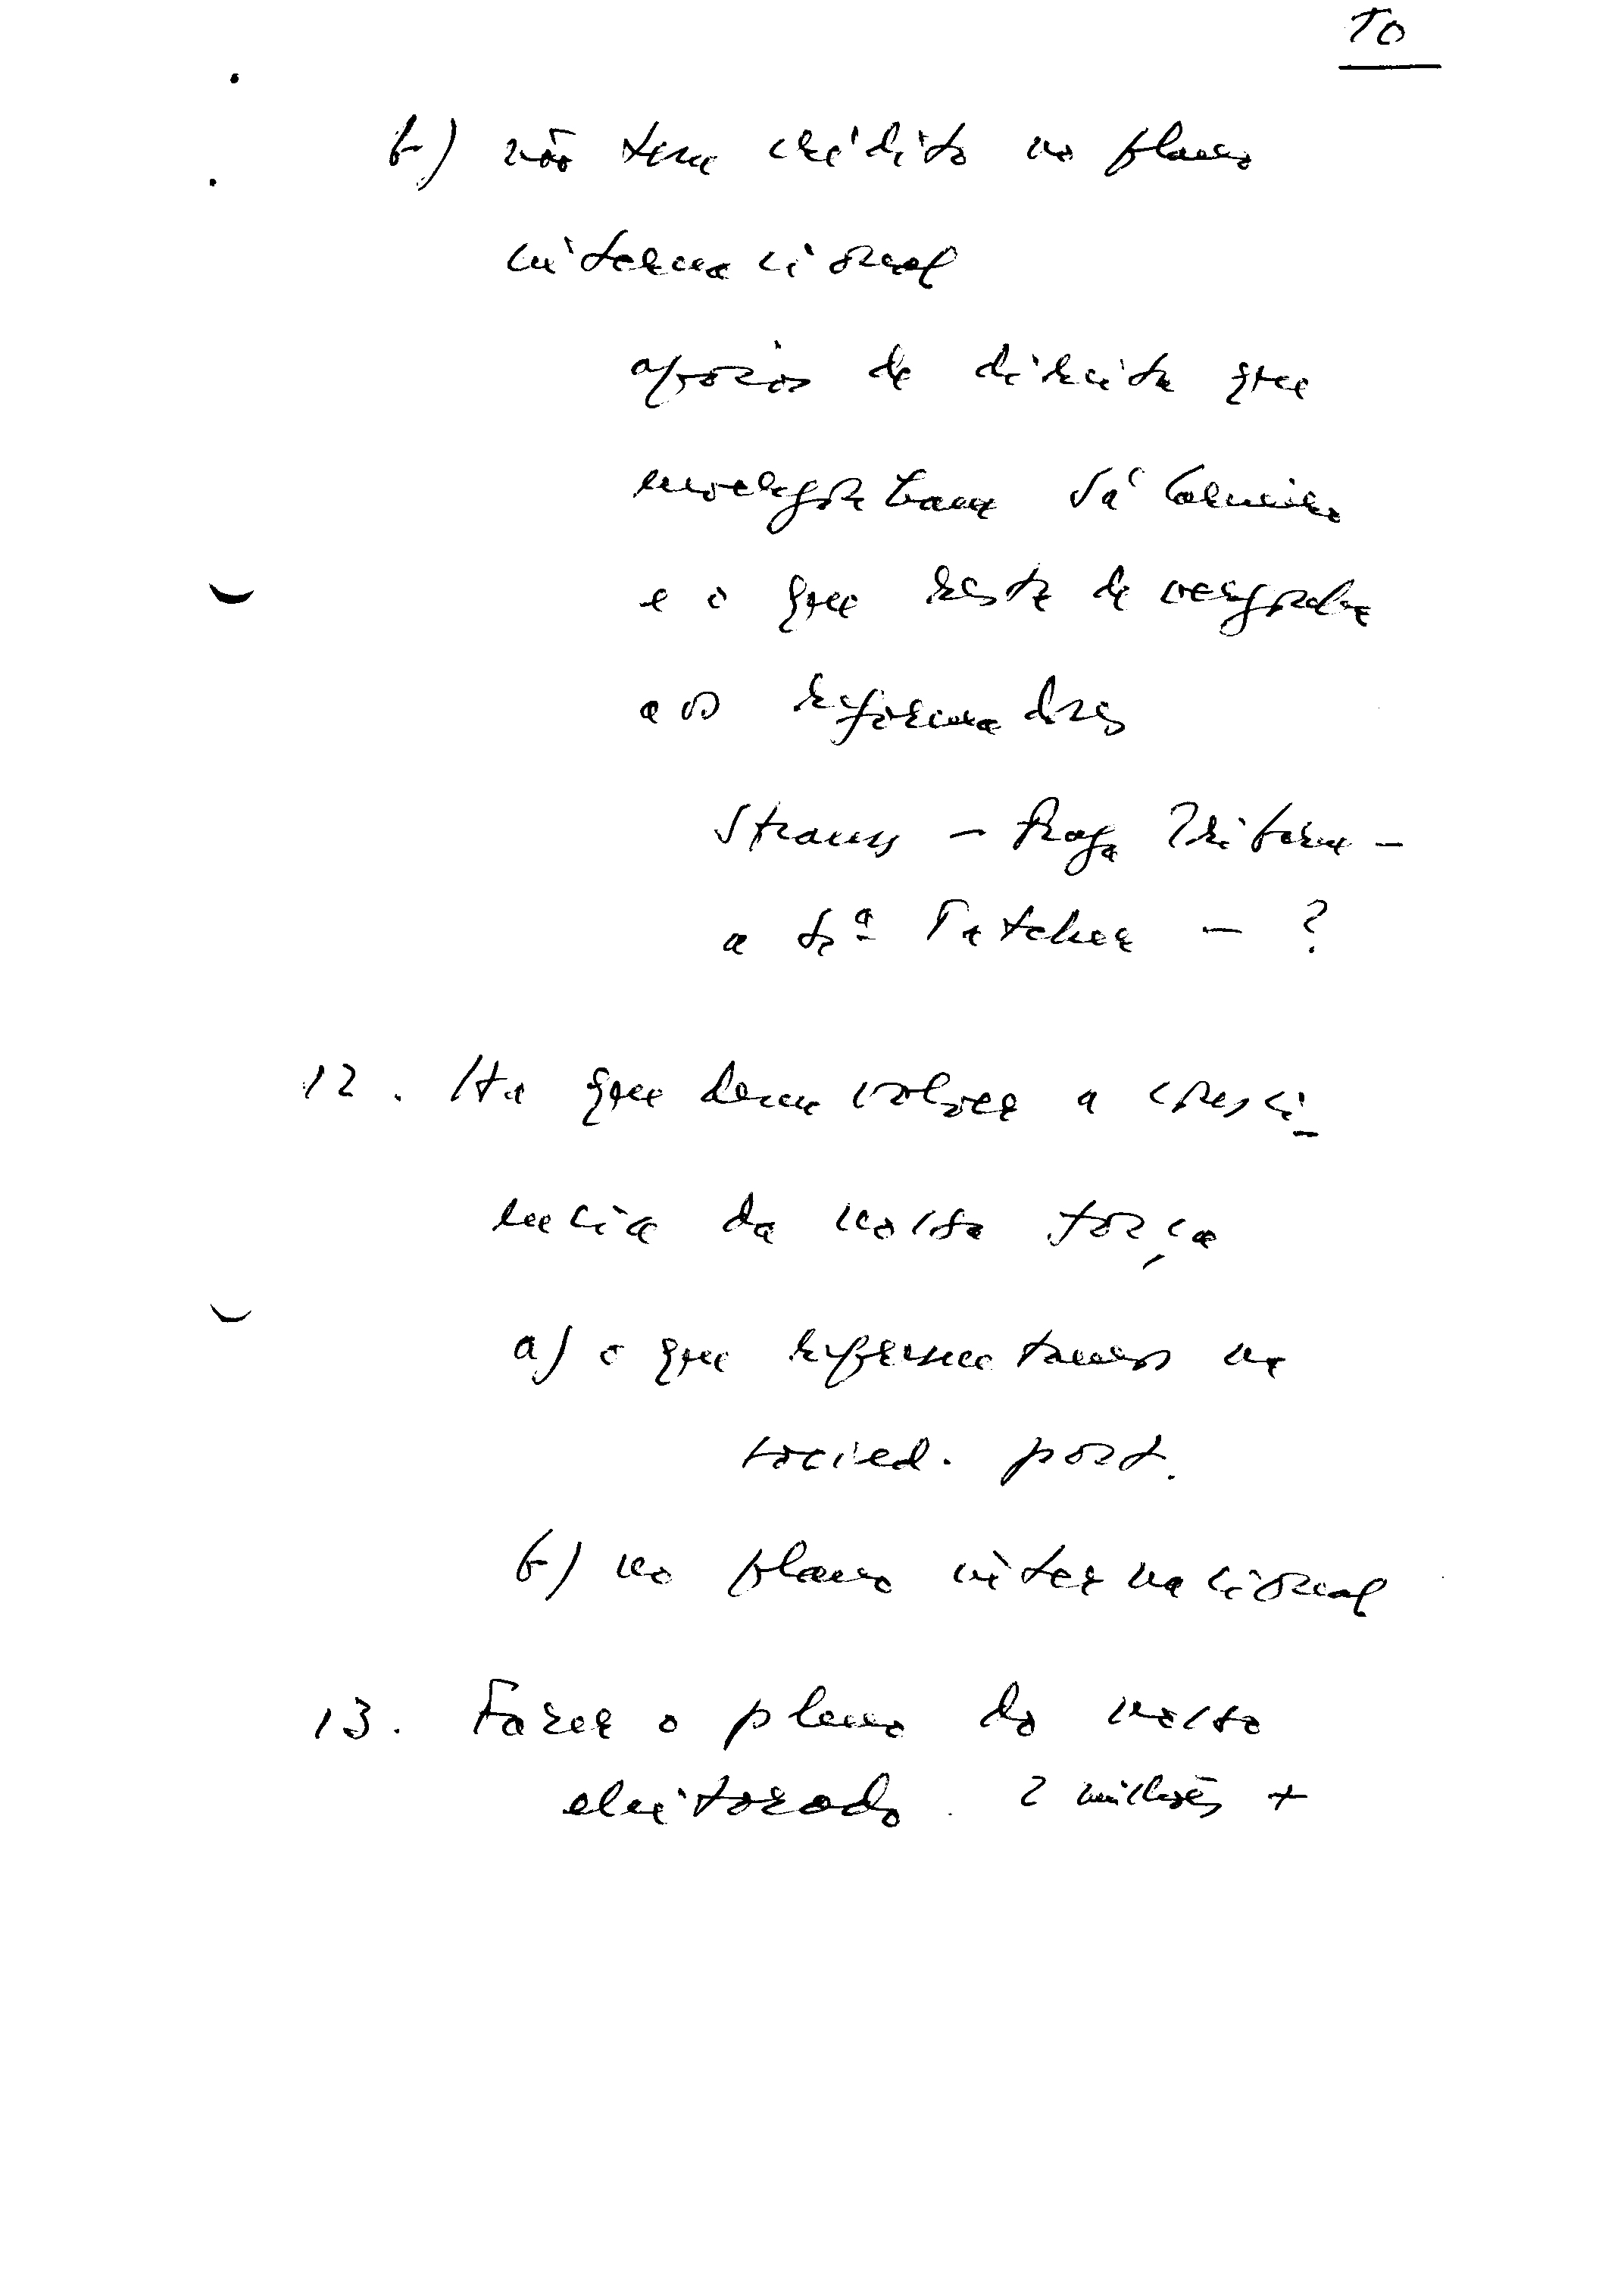 10
b) não tem crédito no plano
internacional
apoios de direita que
envergonham Sá Carneiro
e o que resta de vergonha
aos reformadores
Strauss – Fraga Iribarne –
a Srª Tatcher – ?
12. Há que desenvolver a consci-
ência da nossa força
a) o que representamos na
socied. port.
b) no plano internacional
13. Fazer o pleno do nosso
eleitorado. 2 milhões +